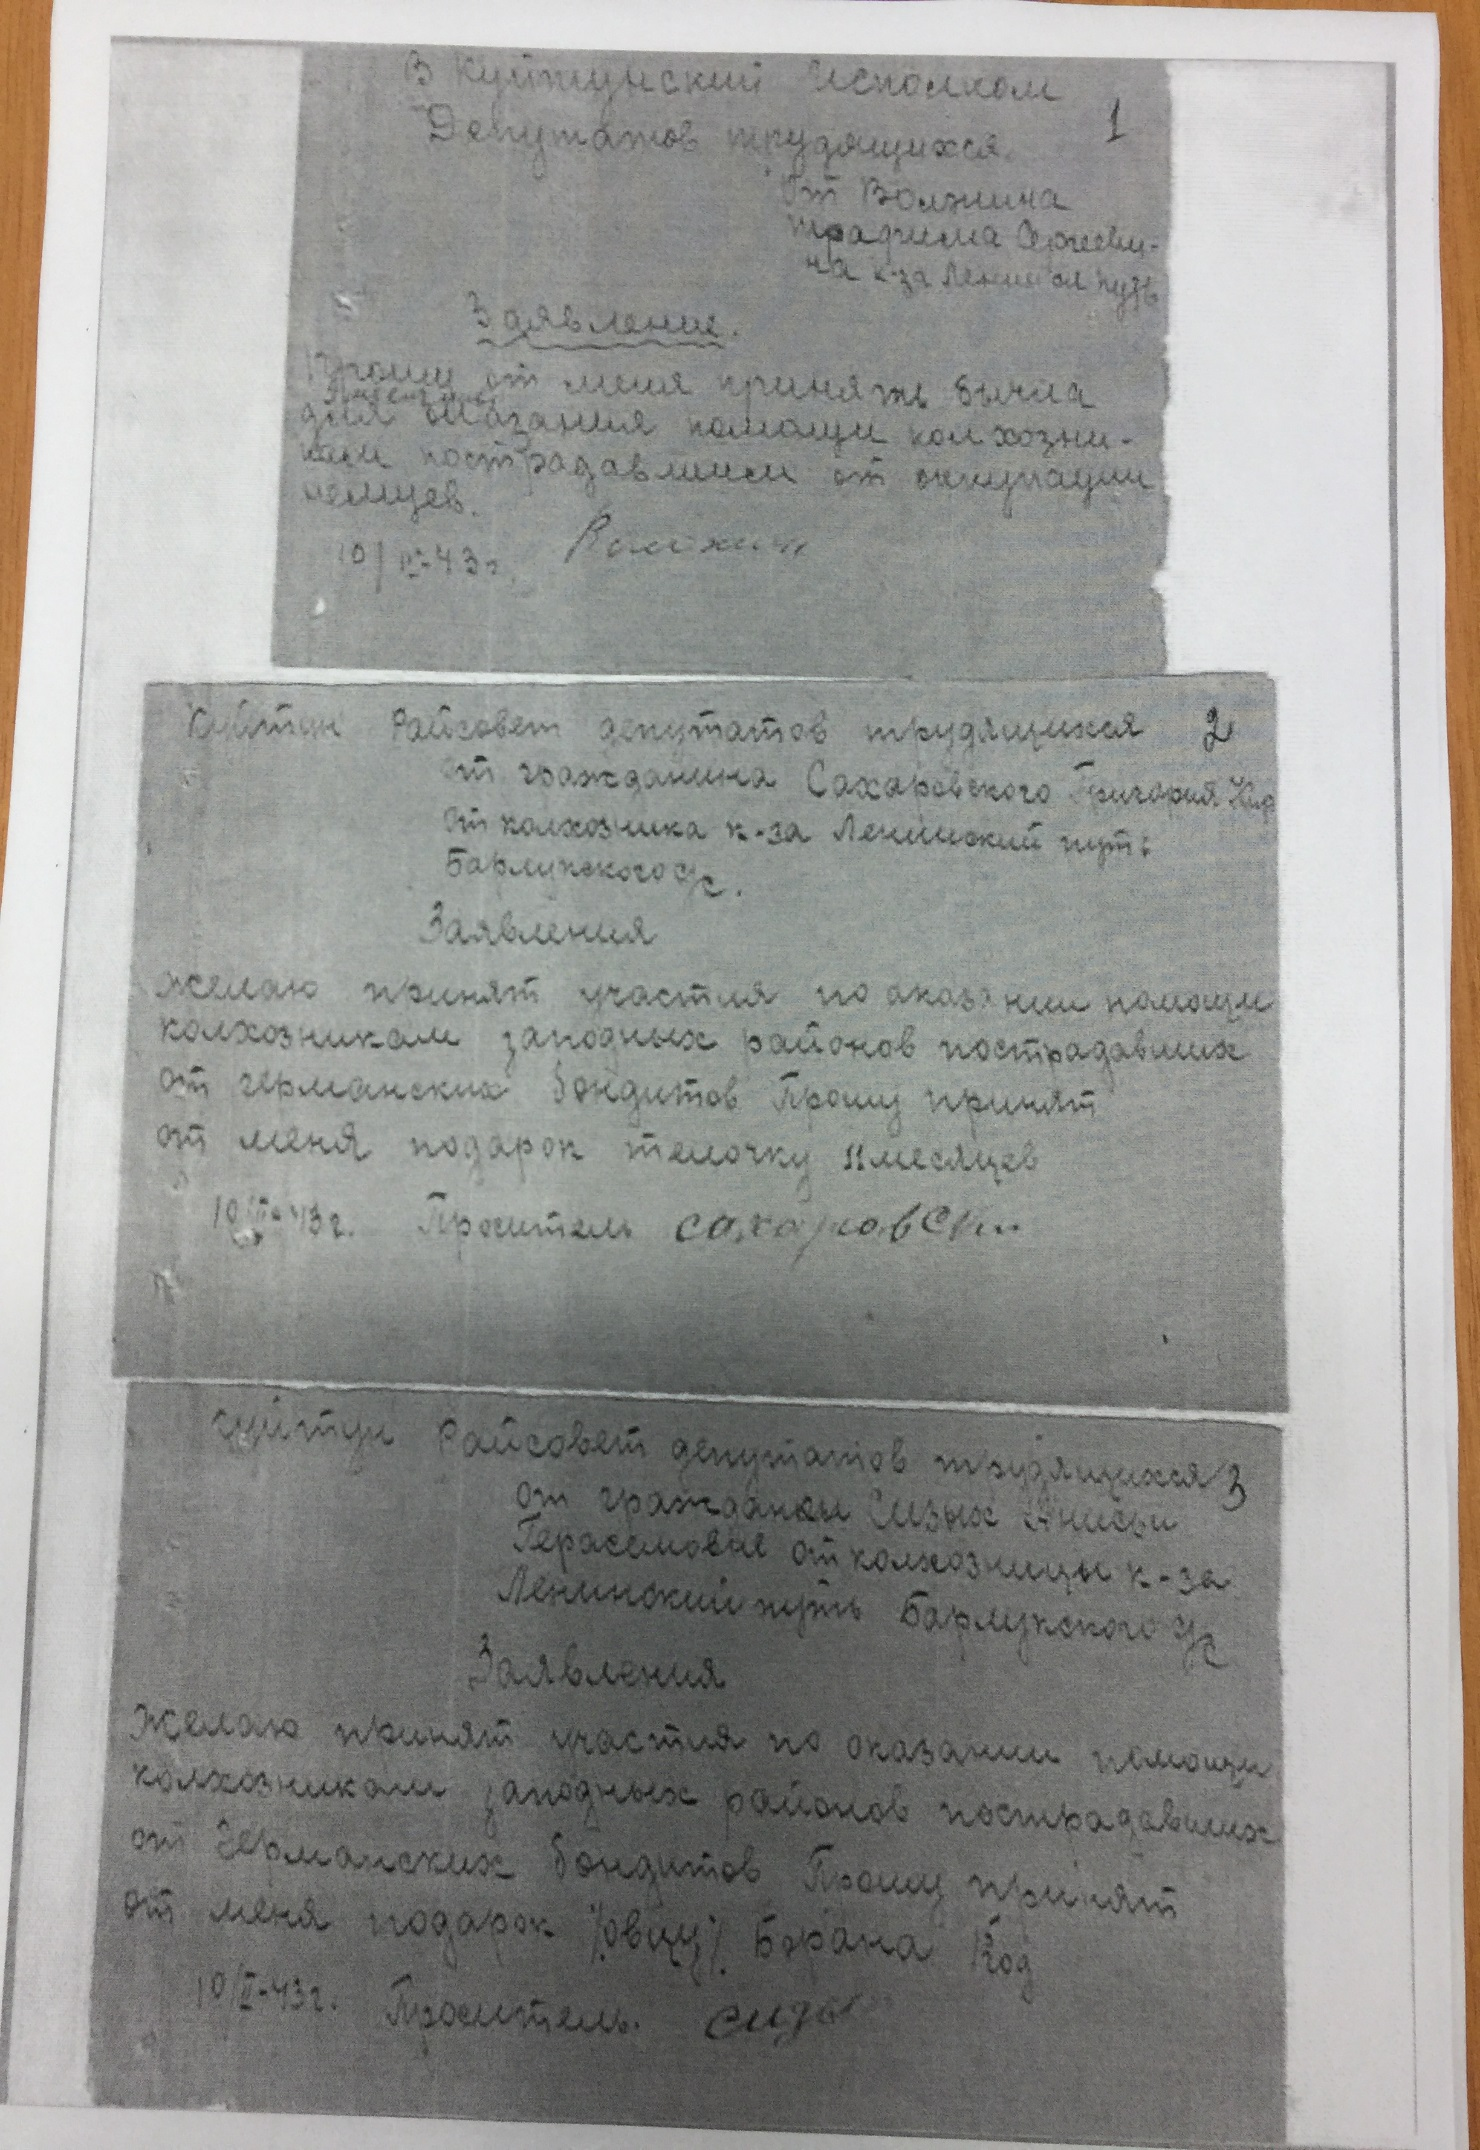 В Куйтунский Исполком
Депутатов трудящихся.
1
от Волжина
Трафима Сергееви-
ча к-за Ленинск путь
Заявление.
Прошу от меня принять бычка
для оказания помощи колхозни-
кам пострадавшим от оккупации
немцев.
10/II-43г. Волжин
Куйтун Райсовет депутатов трудящихся 2
от гражданина Сахаровского Григория
от колхозника к-за Ленинский путь
Барлукского с/с.
Заявления
желаю принят участия по аказании помощи
колхозникам заподных районов пострадавших
от германских бондитов Прошу принят
от меня подарок телочку 11 месяцев
10/II-43г. Проситель сахаровски
Куйтун Райсовет депутатов трудящихся 3
от гражданки Сизых Анисьи
Герасемовне от колхозницы к-за
Ленинский путь Барлукского с/с
Заявления
Желаю принят участия по оказании помощи
колхозникам заподных районов пострадавших
от Германских бондитов Прошу принят
от меня подарок /овцу/ Борана 1 год
10/II-43г. Проситель.